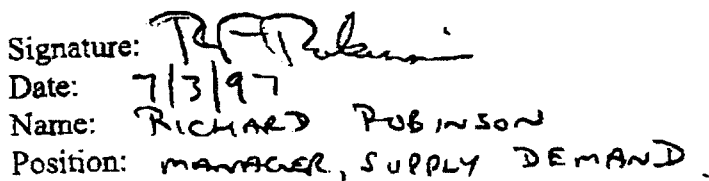 Signature: R A Robinson
Date: 7/3/97
Name: RICHARD ROBINSON
Position: MANAGER, SUPPLY DEMAND.